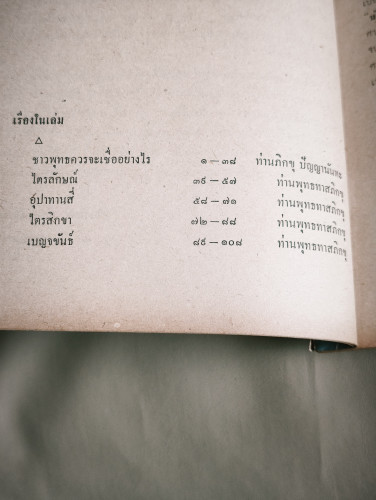 เรื่องในเล่ม
ชาวพุทธควรจะเชื่ออย่างไร ๑ — ๓๘ ท่านภิกขุ ปัญญานันทะ
ไตรลักษณ์ ๓๙ — ๕๗ ท่านพุทธทาสภิกขุ
อุปาทานสี่ ๕๘ — ๗๑ ท่านพุทธทาสภิกขุ
ไตรสิกขา ๗๒ — ๘๘ ท่านพุทธทาสภิกขุ
เบญจขันธ์ ๘๙ — ๑๐๘ ท่านพุทธทาสภิกขุ